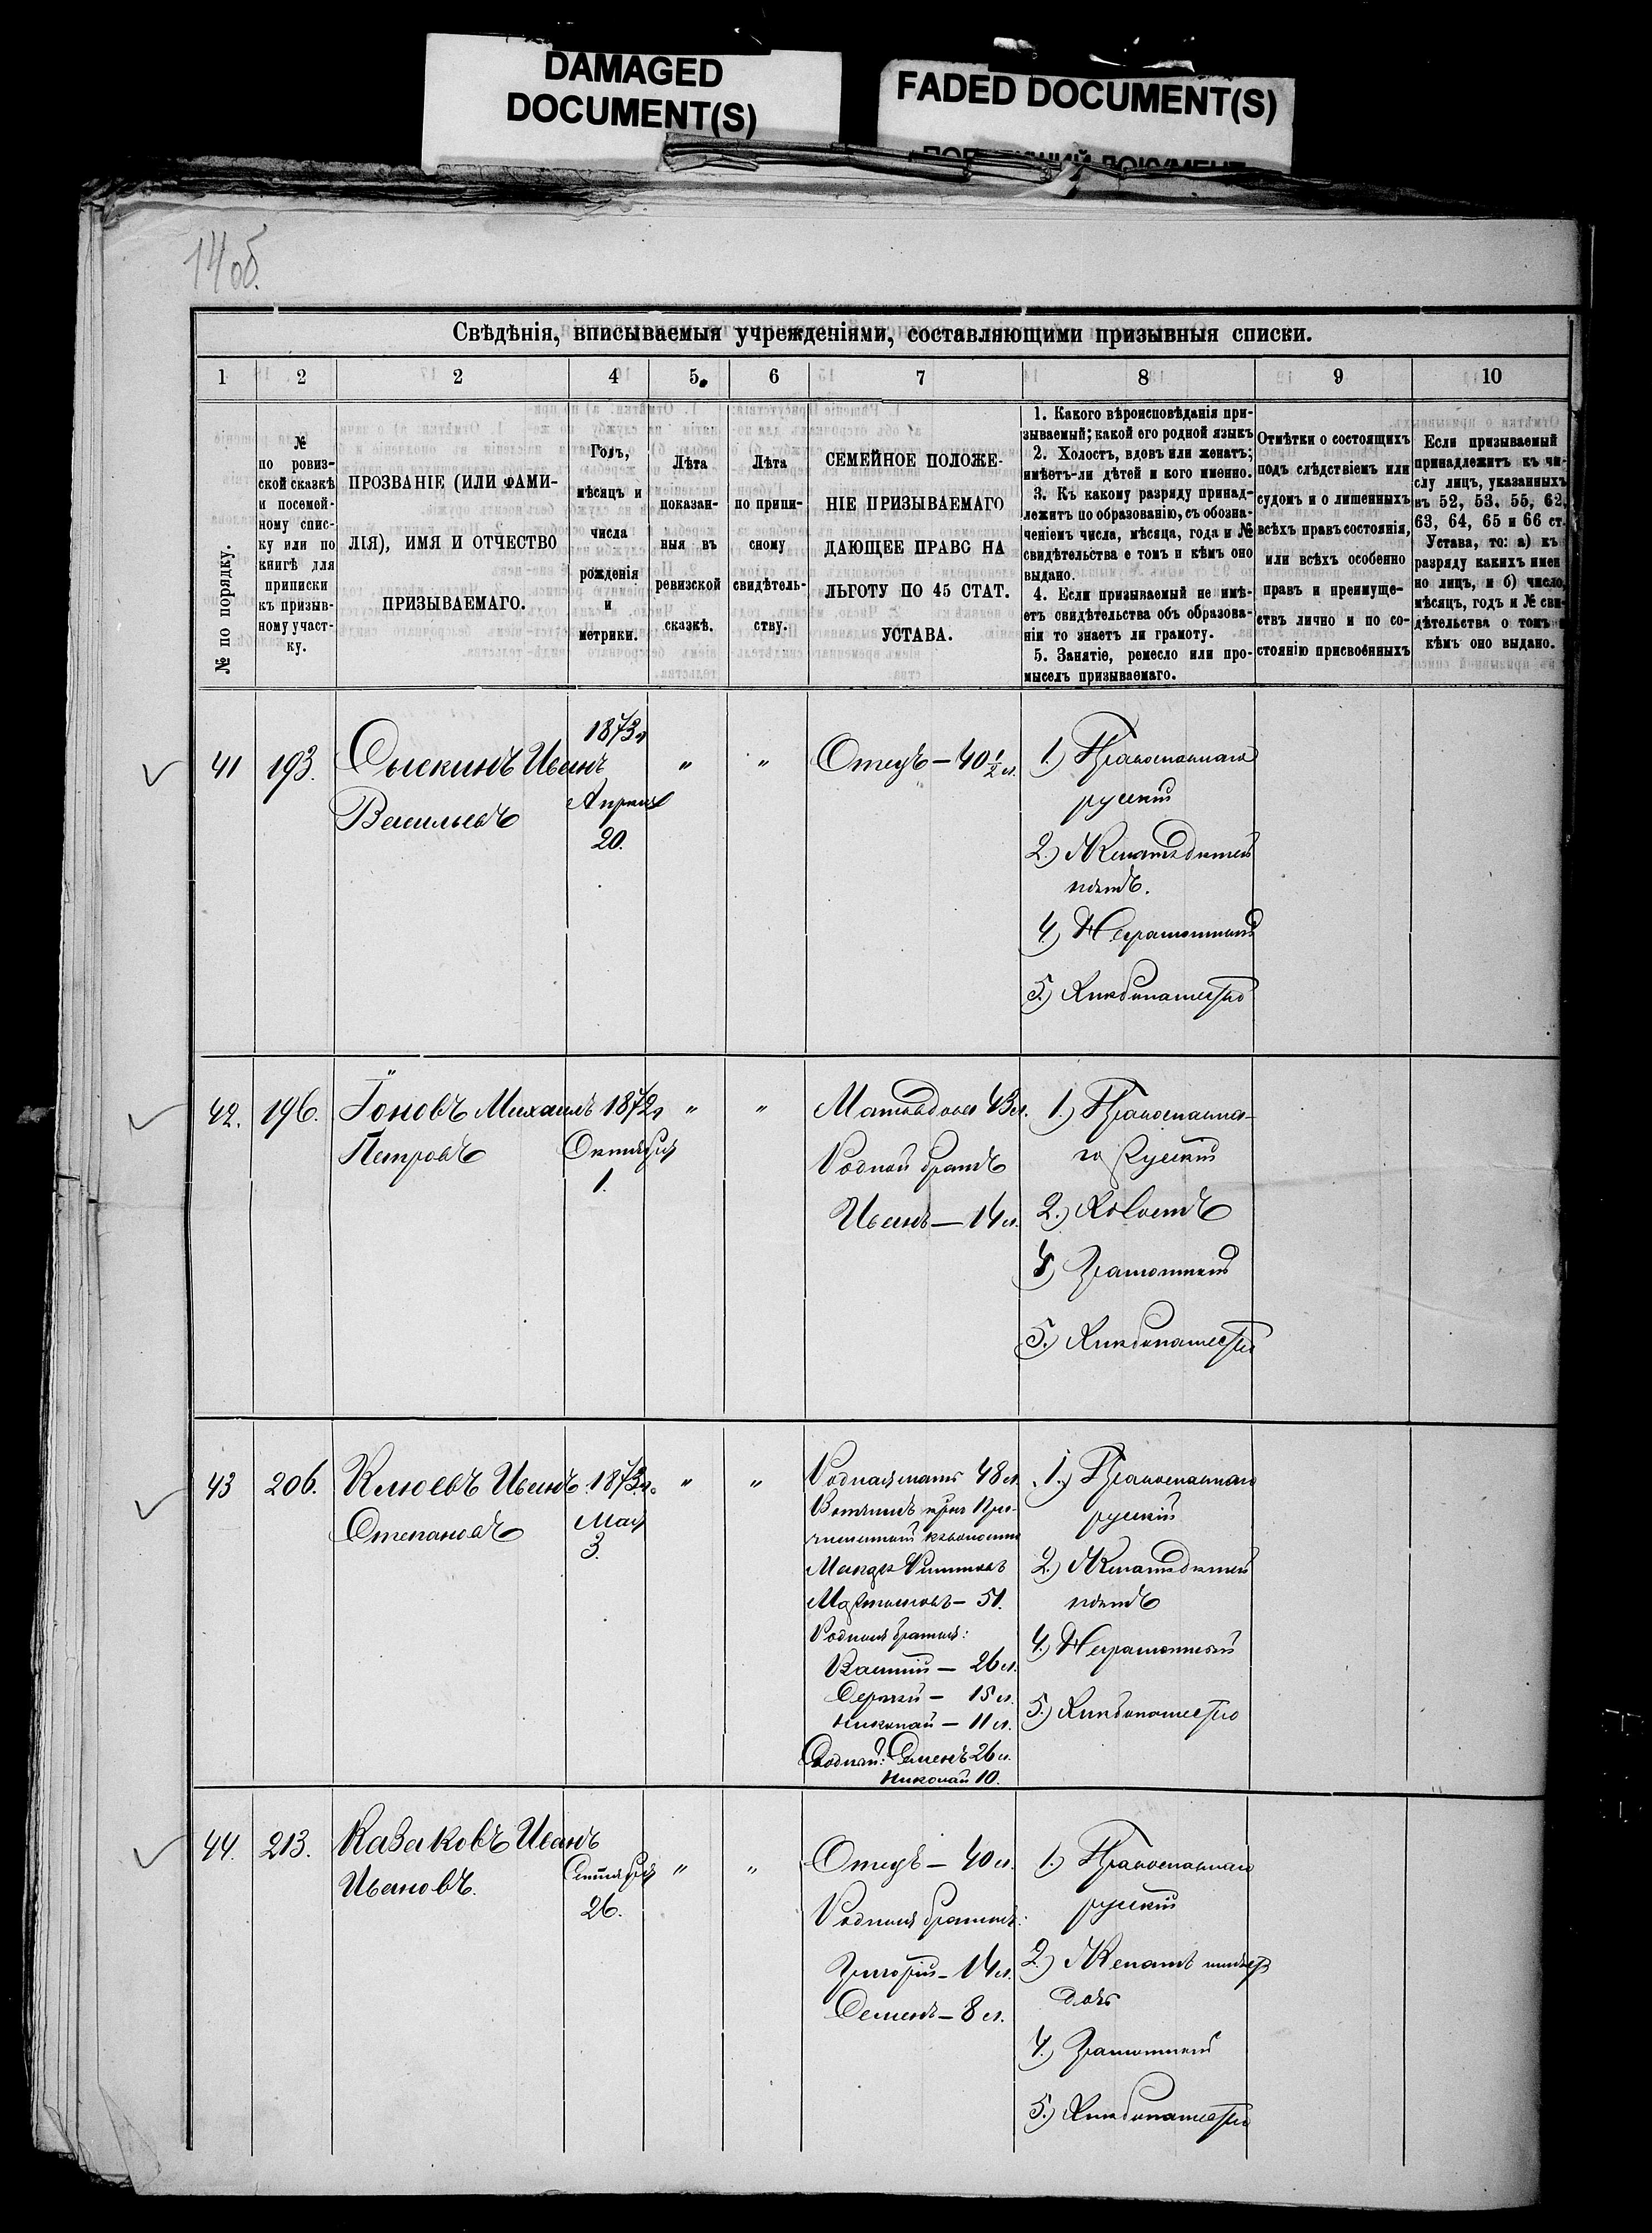 DAMAGED
DOCUMENT(S)
FADED DOCUMENT(S)
14об.
Свѣдѣнія, вписываемыя учрежденіями, составляющими призывныя списки.
1 2 2 4 5. 6 7 8 9 10
№ по порядку.
№
по ревиз-
ской сказкѣ
и посемей-
ному спис-
ку или по
книгѣ для
приписки
къ призыв-
ному участ-
ку.
ПРОЗВАНІЕ (ИЛИ ФАМИ-
ЛІЯ), ИМЯ И ОТЧЕСТВО
ПРИЗЫВАЕМАГО.
Годъ,
мѣсяцъ и
числа
рожденія
и
метрики.
Лѣта
показан-
ныя въ
ревизской
сказкѣ.
Лѣта
по припи-
сному
свидѣтель-
ству.
СЕМЕЙНОЕ ПОЛОЖЕ-
НІЕ ПРИЗЫВАЕМАГО
ДАЮЩЕЕ ПРАВО НА
ЛЬГОТУ ПО 45 СТАТ.
УСТАВА.
1. Какого вѣроисповѣданія при-
зываемый; какой его родной языкъ
2. Холостъ, вдовъ или женатъ;
имѣетъ-ли дѣтей и кого именно.
3. Къ какому разряду принад-
лежитъ по образованію, съ обозна-
ченіемъ числа, мѣсяца, года и №
свидѣтельства о томъ и кѣмъ оно
выдано.
4. Если призываемый не имѣ-
етъ свидѣтельства объ образова-
ніи то знаетъ ли грамоту.
5. Занятіе, ремесло или про-
мыселъ призываемаго.
Отмѣтки о состоящихъ
подъ слѣдствіемъ или
судомъ и о лишенныхъ
всѣхъ правъ состоянія,
или всѣхъ особенно
правъ и преимуще-
ствъ лично и по со-
стоянію присвоенныхъ
Если призываемый
принадлежитъ къ чи-
слу лицъ, указанныхъ
въ 52, 53, 55, 62,
63, 64, 65 и 66 ст.
Устава, то: а) къ
разряду какихъ имен
но лицъ, и б) число,
мѣсяцъ, годъ и № сви-
дѣтельства о томъ и
кѣмъ оно выдано.
41 193. Сыскинъ Иванъ
Васильевъ
1873 г
Апрѣля
20.
" "
Отецъ — 40 1/2 л.
1.) Православнаго
русскій
2.) Женатъ дѣтей
нѣтъ.
4.) Неграмотный
5.) Хлѣбопашество
42. 196. Іоновъ Михаилъ
Петровъ
1872 г
Октября
1.
" "
Мать вдова 43 л.
Родной братъ
Иванъ — 14 л.
1.) Православна-
го Русскій
2.) Холостъ
4) Грамотный
5.) Хлѣбопашество
43 206. Клюевъ Иванъ
Степановъ
1873 г.
Мая
3.
" "
Родная мать 48 л.
Вотчимъ
Мартыновъ — 51.
Родныя братья:
Василій — 26 л.
Сергѣй — 15 л.
Николай — 11 л.
Сводный: Семенъ 26 л.
Николай 10.
1.) Православнаго
русскій
2.) Женатъ дѣтей
нѣтъ
4.) Неграмотный
5.) Хлѣбопашество
44. 213. Казаковъ Иванъ
Ивановъ.
Сентября
26.
" "
Отецъ — 40 л.
Родныя братья:
Григорій — 14 л.
Семенъ — 8 л.
1.) Православнаго
русскій
2.) Женатъ имѣетъ
дочь
4.) Грамотный
5.) Хлѣбопашество